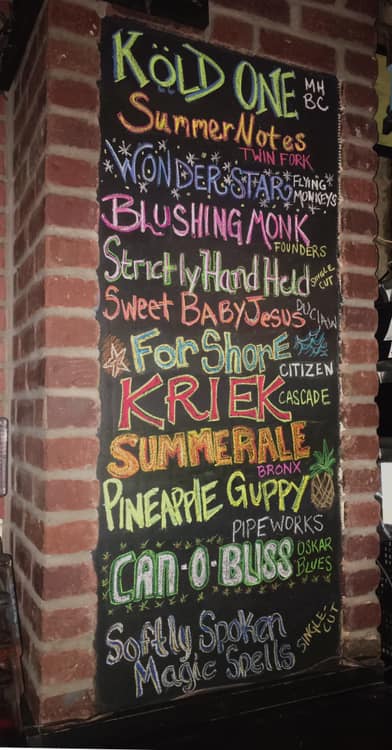 KÖLD ONE MH BC
SummerNotes
TWIN FORK
WONDERSTAR FLYING MONKEYS
BLUSHING MONK
FOUNDERS
Strictly Hand Held SINGLE CUT
Sweet BABY JESUS DUCLAW
For ShorE
CITIZEN
KRIEK CASCADE
SUMMERALE
BRONX
PINEAPPLE GUPPY
PIPEWORKS
CAN-O-BLISS OSKAR BLUES
Softly Spoken
Magic Spells SINGLE-CUT